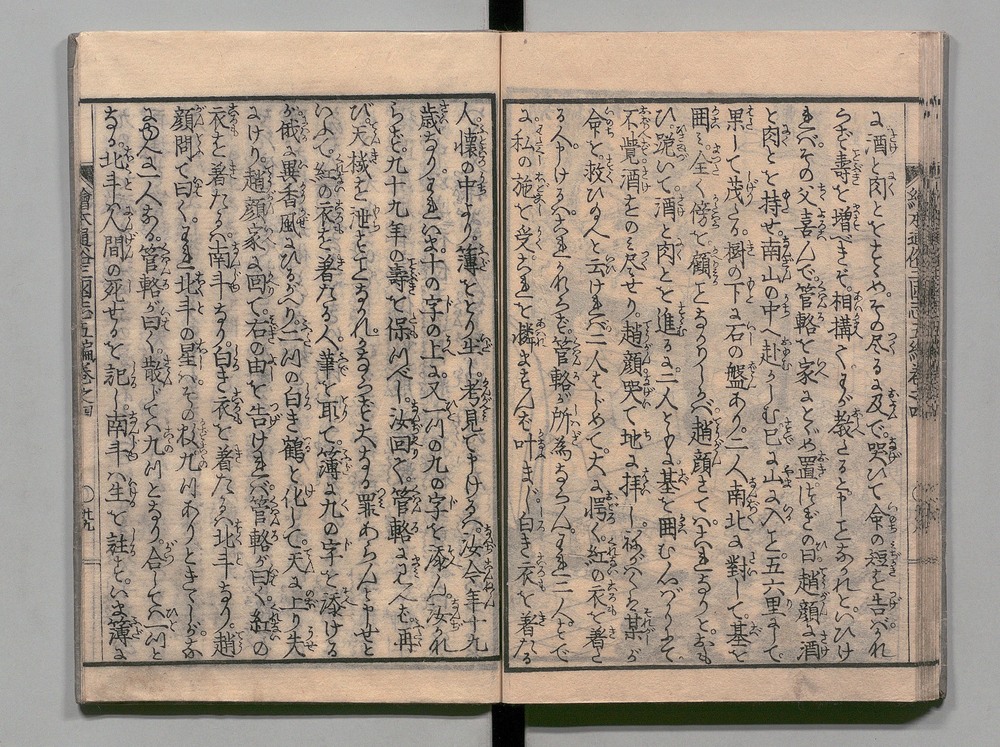 に酒と肉とをすゝめその尽るに及で哭ひて命の短を告べかれ
らず壽を増べきぞ相構てわが教たると申ことなかれといひけ
ればその父喜んで管輅を家にとゞめ置けりつぎの日趙顔は酒
と肉とを持せ南山の中へ赴かしむ已に山に入こと五六里にして
果して茂たる樹の下に石の盤あり二人南北に對して碁を
囲み全く傍を顧ことなかりしかば趙顔さてはこれなりとおも
ひ跪いて酒と肉とを進るに二人ともに碁を囲む心がりにて
不覚酒をのみ尽せり趙顔哭て地に拝し祢がはくは某が
命を救ひ給へと云ければ二人はじめて大に愕く紅の衣を着
る人申けるはこれかならず管輅が所為ならんわれ二人すで
に私の施を受これを憐まずんば叶まじ白き衣を着たる
人懐の中より簿をとり出し考見て申けるは汝今年十九
歳なりわれいま十の字の上に又一つの九の字を添ん汝かな
らず九十九年の壽を保つべし汝回て管輅に見へば再
び天機を泄ことなかれしからずば大なる罪あらんと申せと
いふて紅の衣を着たる人筆を取て簿に九の字を添ける
が俄に異香風にひるがへり二つの白き鶴と化して天に上り失
にけり趙顔家に回て右の由を告ければ管輅が曰く紅の
衣を着たるは南斗なり白き衣を着たるは北斗なり趙
顔問て曰くわれ北斗の星はその数九つありときくしかる
にゆへに一人なる管輅が曰く散じては九つとなり合しては一つと
なる北斗は人間の死せるを記し南斗は生を註すいま簿に
繪本通俗三國志五編巻之四
廿九